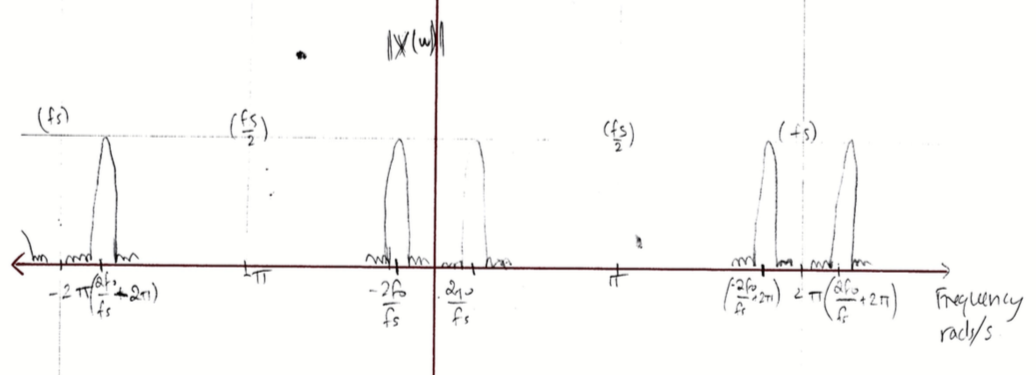 |X(w)|
(fs)
(fs/2)
(fs/2)
(fs)
-2π
(2f₀/fs - 2π)
-π
-2f₀/fs
2f₀/fs
π
(-2f₀/fs + 2π)
2π
(2f₀/fs + 2π)
Frequency
rads/s